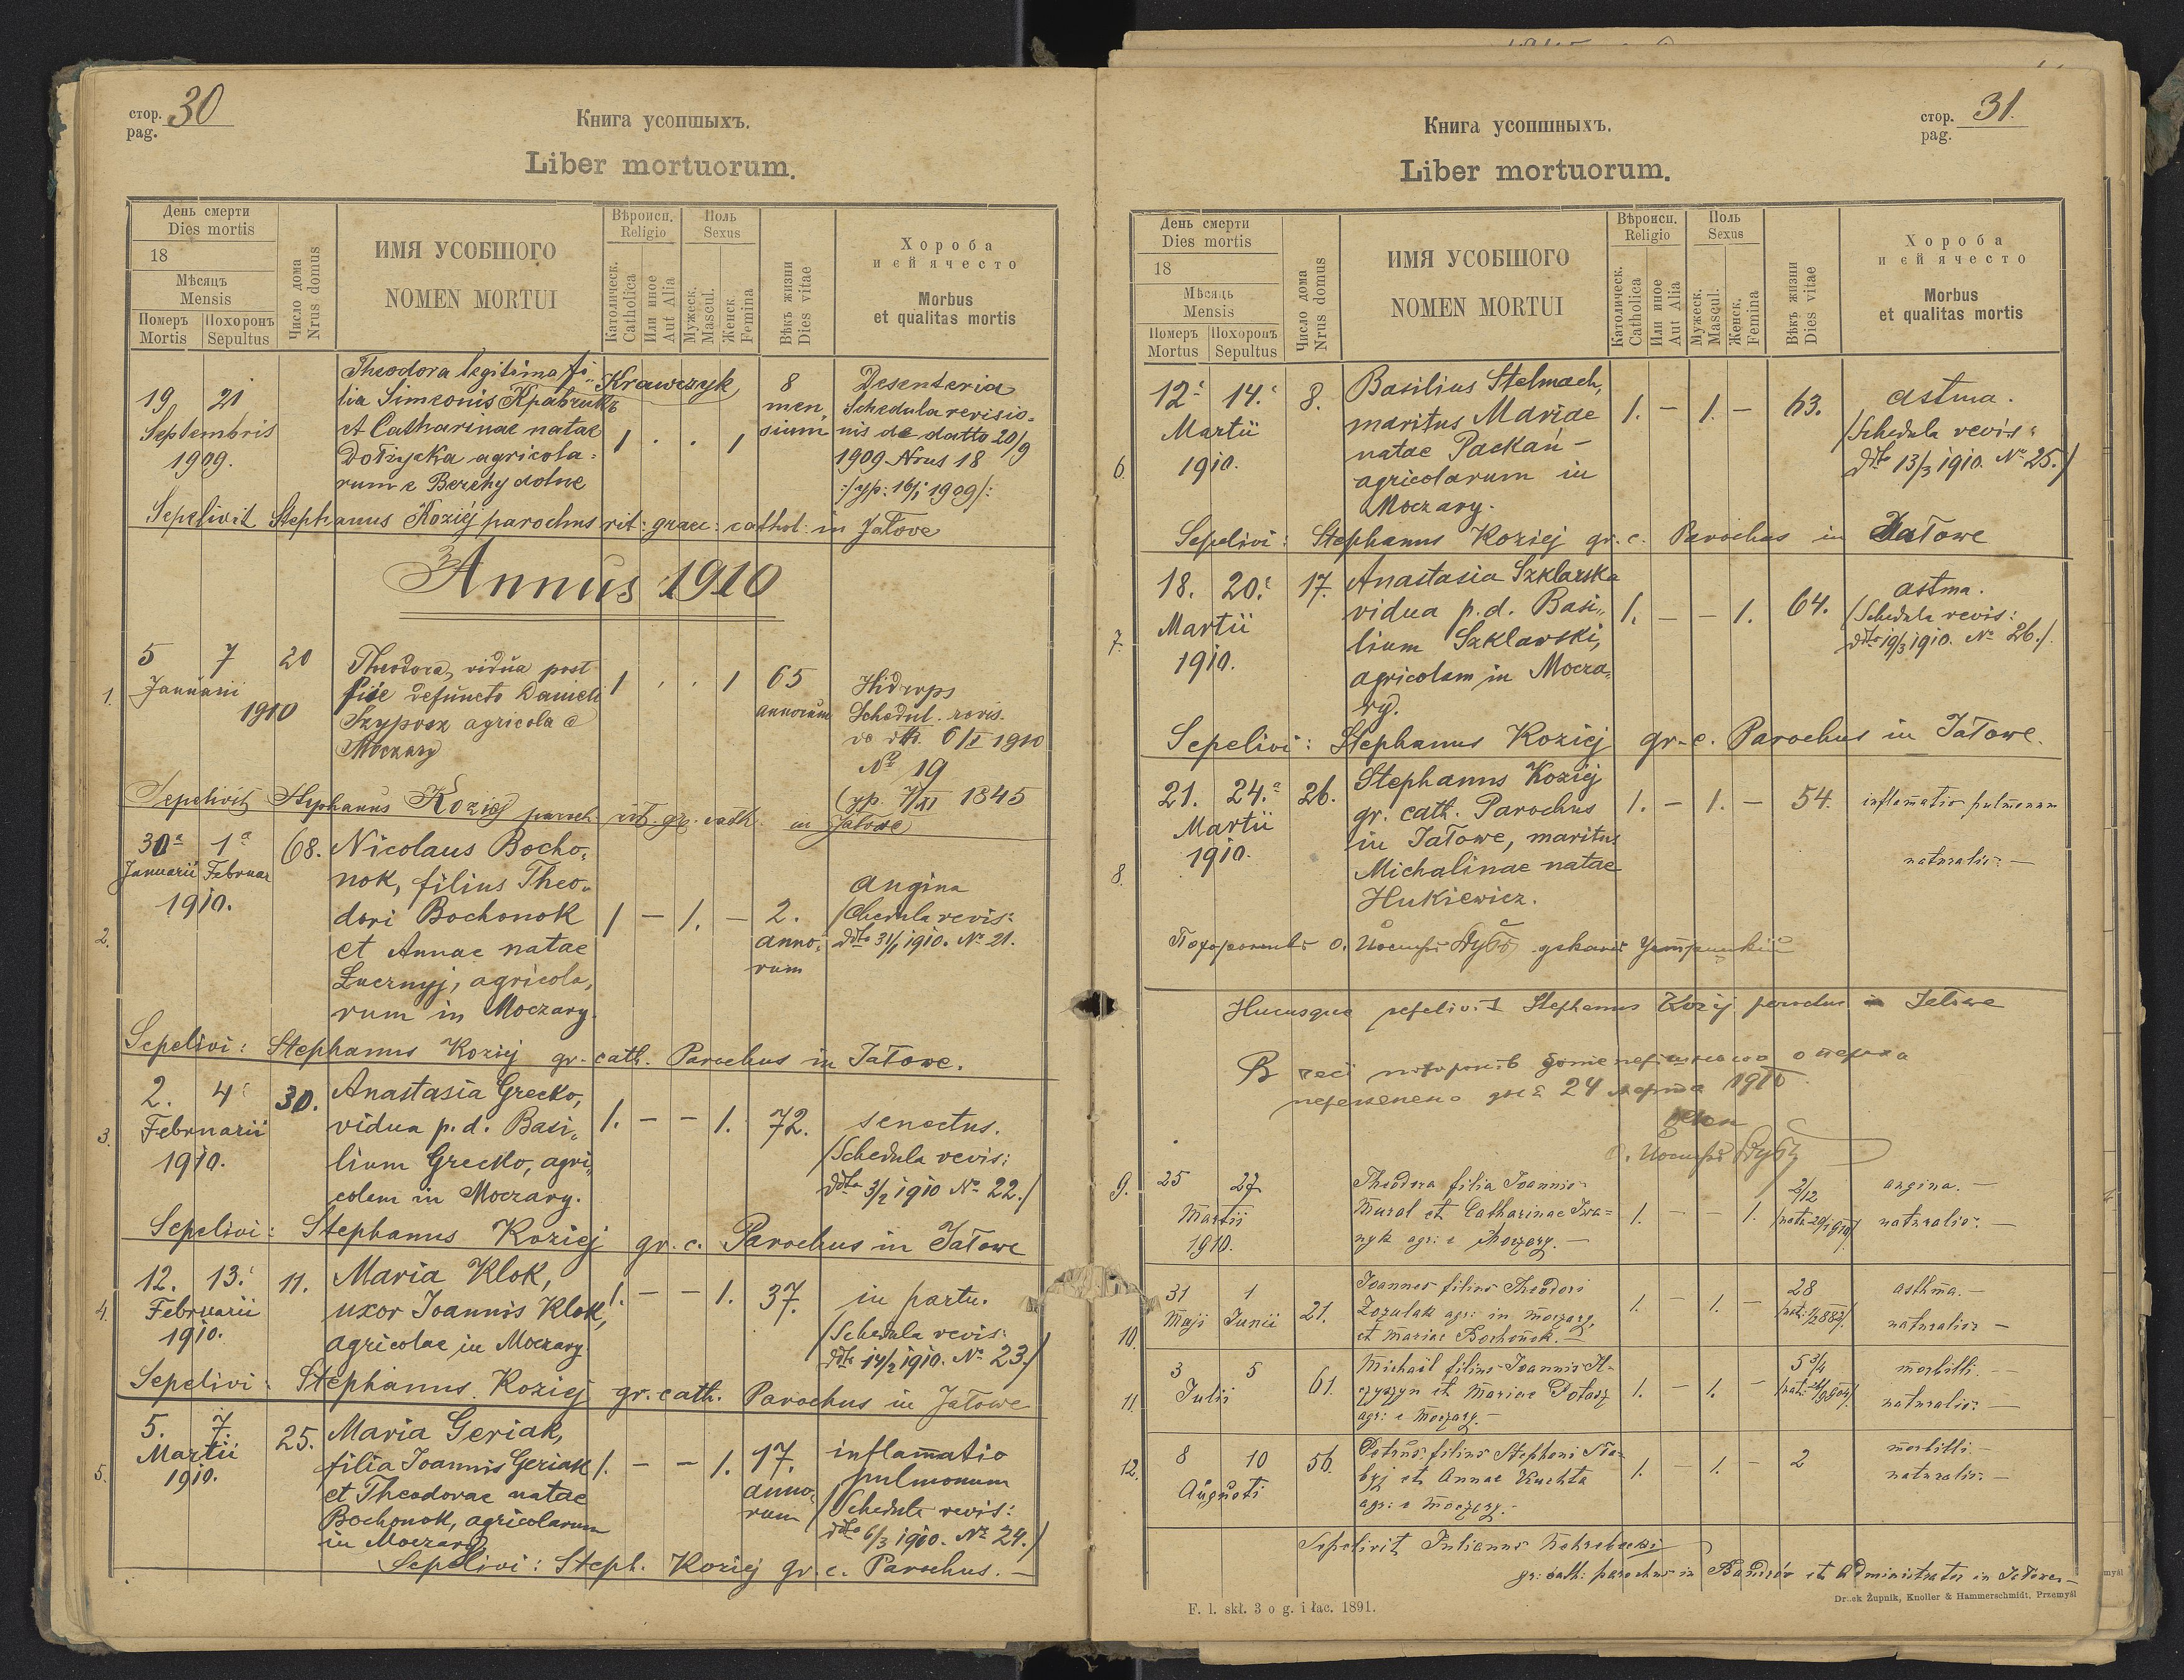 стор. 30
pag.
Книга усопшыхъ.
Liber mortuorum.
День смерти
Dies mortis
18
Мѣсяцъ
Mensis
Померъ Похоронъ
Mortis Sepultus
Число дома
Nrus domus
ИМЯ УСОБШОГО
NOMEN MORTUI
Вѣроисп.
Religio
Католическ.
Catholica
Или иное
Aut Alia
Поль
Sexus
Мужеск.
Mascul.
Женск.
Femina
Вѣкъ жизни
Dies vitae
Хороба
и єй ячесто
Morbus
et qualitas mortis
19 21
Septembris
1909.
Theodora legitima fi„
lia Simeonis
et Catharinae natae
Dołżycka agricola=
rum e Berehy dolne
Krawczyk
1 . . 1
8
men,
sium
Desenteria
Schedula revisio=
nis de datto 20/9
1909. Nrus 18
Sepelivit Stephanus Koziéj parochus rit: graec: cathol: in Jałove
Annus 1910
1.
5 7
Januarii
1910
20
Theodora, vidua post
pie defuncto Danieli
agricola e
Moczary
1 . . 1
65
annorum
Hidrops
Schedul. revis.
de dtto. 6/I 1910
No 19
7/XI 1845
Sepelivit Stephanus Koziej paroch. rit. gr. cath. in Jałowe
2.
30a 1a
Januarii Februar
1910.
68.
Nicolaus Bocho„
nok, filius Theo„
dori Bochonok
et Annae natae
Łucznyj, agricola„
rum in Moczary.
1 — 1. —
2.
anno„
rum
angina
revis:
ddto 31/1 1910. No 21.
Sepelivi: Stephanus Koziej gr. cath. Parochus in Jałowe.
3.
2. 4.
Februarii
1910.
30.
Anastasia Grecko,
vidua p. d. Basi„
lium Grecko, agri„
colam in Moczary.
1. — — 1.
72.
senectus.
/Schedula revis:
ddto 3/2 1910 No 22./
Sepelivi: Stephanus Koziej gr. c. Parochus in Jałowe
4.
12. 13.
Februarii
1910.
11.
Maria Klok,
uxor Joannis Klok,
agricolae in Moczary.
1. — — 1.
37.
in partu.
/Schedula revis:
ddto 14/2 1910. No 23./
Sepelivi: Stephanus Koziej gr. cath. Parochus in Jałowe
5.
5. 7.
Martii
1910.
25.
Maria Geriak,
filia Joannis Geriak
et Theodorae natae
Bochonok, agricolarum
in Moczary
1. — — 1.
17.
anno„
rum
inflam̄atio
pulmonum
/Schedula revis:
ddto 6/3 1910. No 24./
Sepelivi: Steph. Koziej gr. c. Parochus. —
стор. 31.
pag.
Книга усопшныхъ.
Liber mortuorum.
День смерти
Dies mortis
18
Мѣсяць
Mensis
Померъ Похоронъ
Mortus Sepultus
Число дома
Nrus domus
ИМЯ УСОБШОГО
NOMEN MORTUI
Вѣроисп.
Religio
Католическ.
Catholica
Или иное
Aut Alia
Поль
Sexus
Мужеск.
Mascul.
Женск.
Femina
Вѣкъ жизни
Dies vitae
Хороба
и єй ячесто
Morbus
et qualitas mortis
6.
12. 14.
Martii
1910.
8.
Basilius Stelmach,
maritus Mariae
natae Packań —
agricolarum in
Moczary.
1. — 1. —
63.
astma.
/Schedula revis:
ddto 13/3 1910. No 25./
Sepelivi: Stephanus Koziej gr. c. Parochus in Jałowe
7.
18. 20.
Martii
1910.
17.
Anastasia Szklarska
vidua p. d. Basi„
lium Szklarski,
agricolam in Mocza„
ry.
1. — — 1.
64.
astma.
/Schedula revis:
ddto 19/3 1910. No 26./
Sepelivi: Stephanus Koziej gr. c. Parochus in Jałowe.
8.
21. 24.
Martii
1910.
26.
Stephanus Koziej
gr. cath. Parochus
in Jałowe, maritus
Michalinae natae
Hukiewicz.
1. — 1. —
54.
inflam̄atio pulmonum
naturalis. —
о. Йосифъ
Hucusque sepelivit Stephanus Koziej parochus in Jałowe
24 марта 1910
о. Йосифъ
9.
25 27
Martii
1910.
Theodora filia Joannis
Mural et Catharinae Iwa=
nyk agr: e Moczary. —
1. — — 1.
2/12
angina. —
naturalis. —
10.
31 1
Maji Junii
21.
Joannes filius Theodori
Zozulak agr: in Moczary,
et Mariae Bochonok. —
1. — 1. —
28
asthma. —
naturalis —
11.
3 5
Julii
61.
Michail filius Joannis
et Mariae
agr: e Moczary. —
1. — 1. —
5 3/4
morbilli. —
naturalis. —
12.
8 10
Augusti
56.
Petrus filius Stephani Sła„
byj et Annae Kuchta
agr: e Moczary. —
1. — 1. —
2
morbilli. —
naturalis. —
Sepelivit Julianus
gr: cath: parochus in Bandrów et Administrator in Jałowe. —
F. l. skł. 3 o g. i łac. 1891.
Druck Żupnik, Knoller & Hammerschmidt, Przemyśl